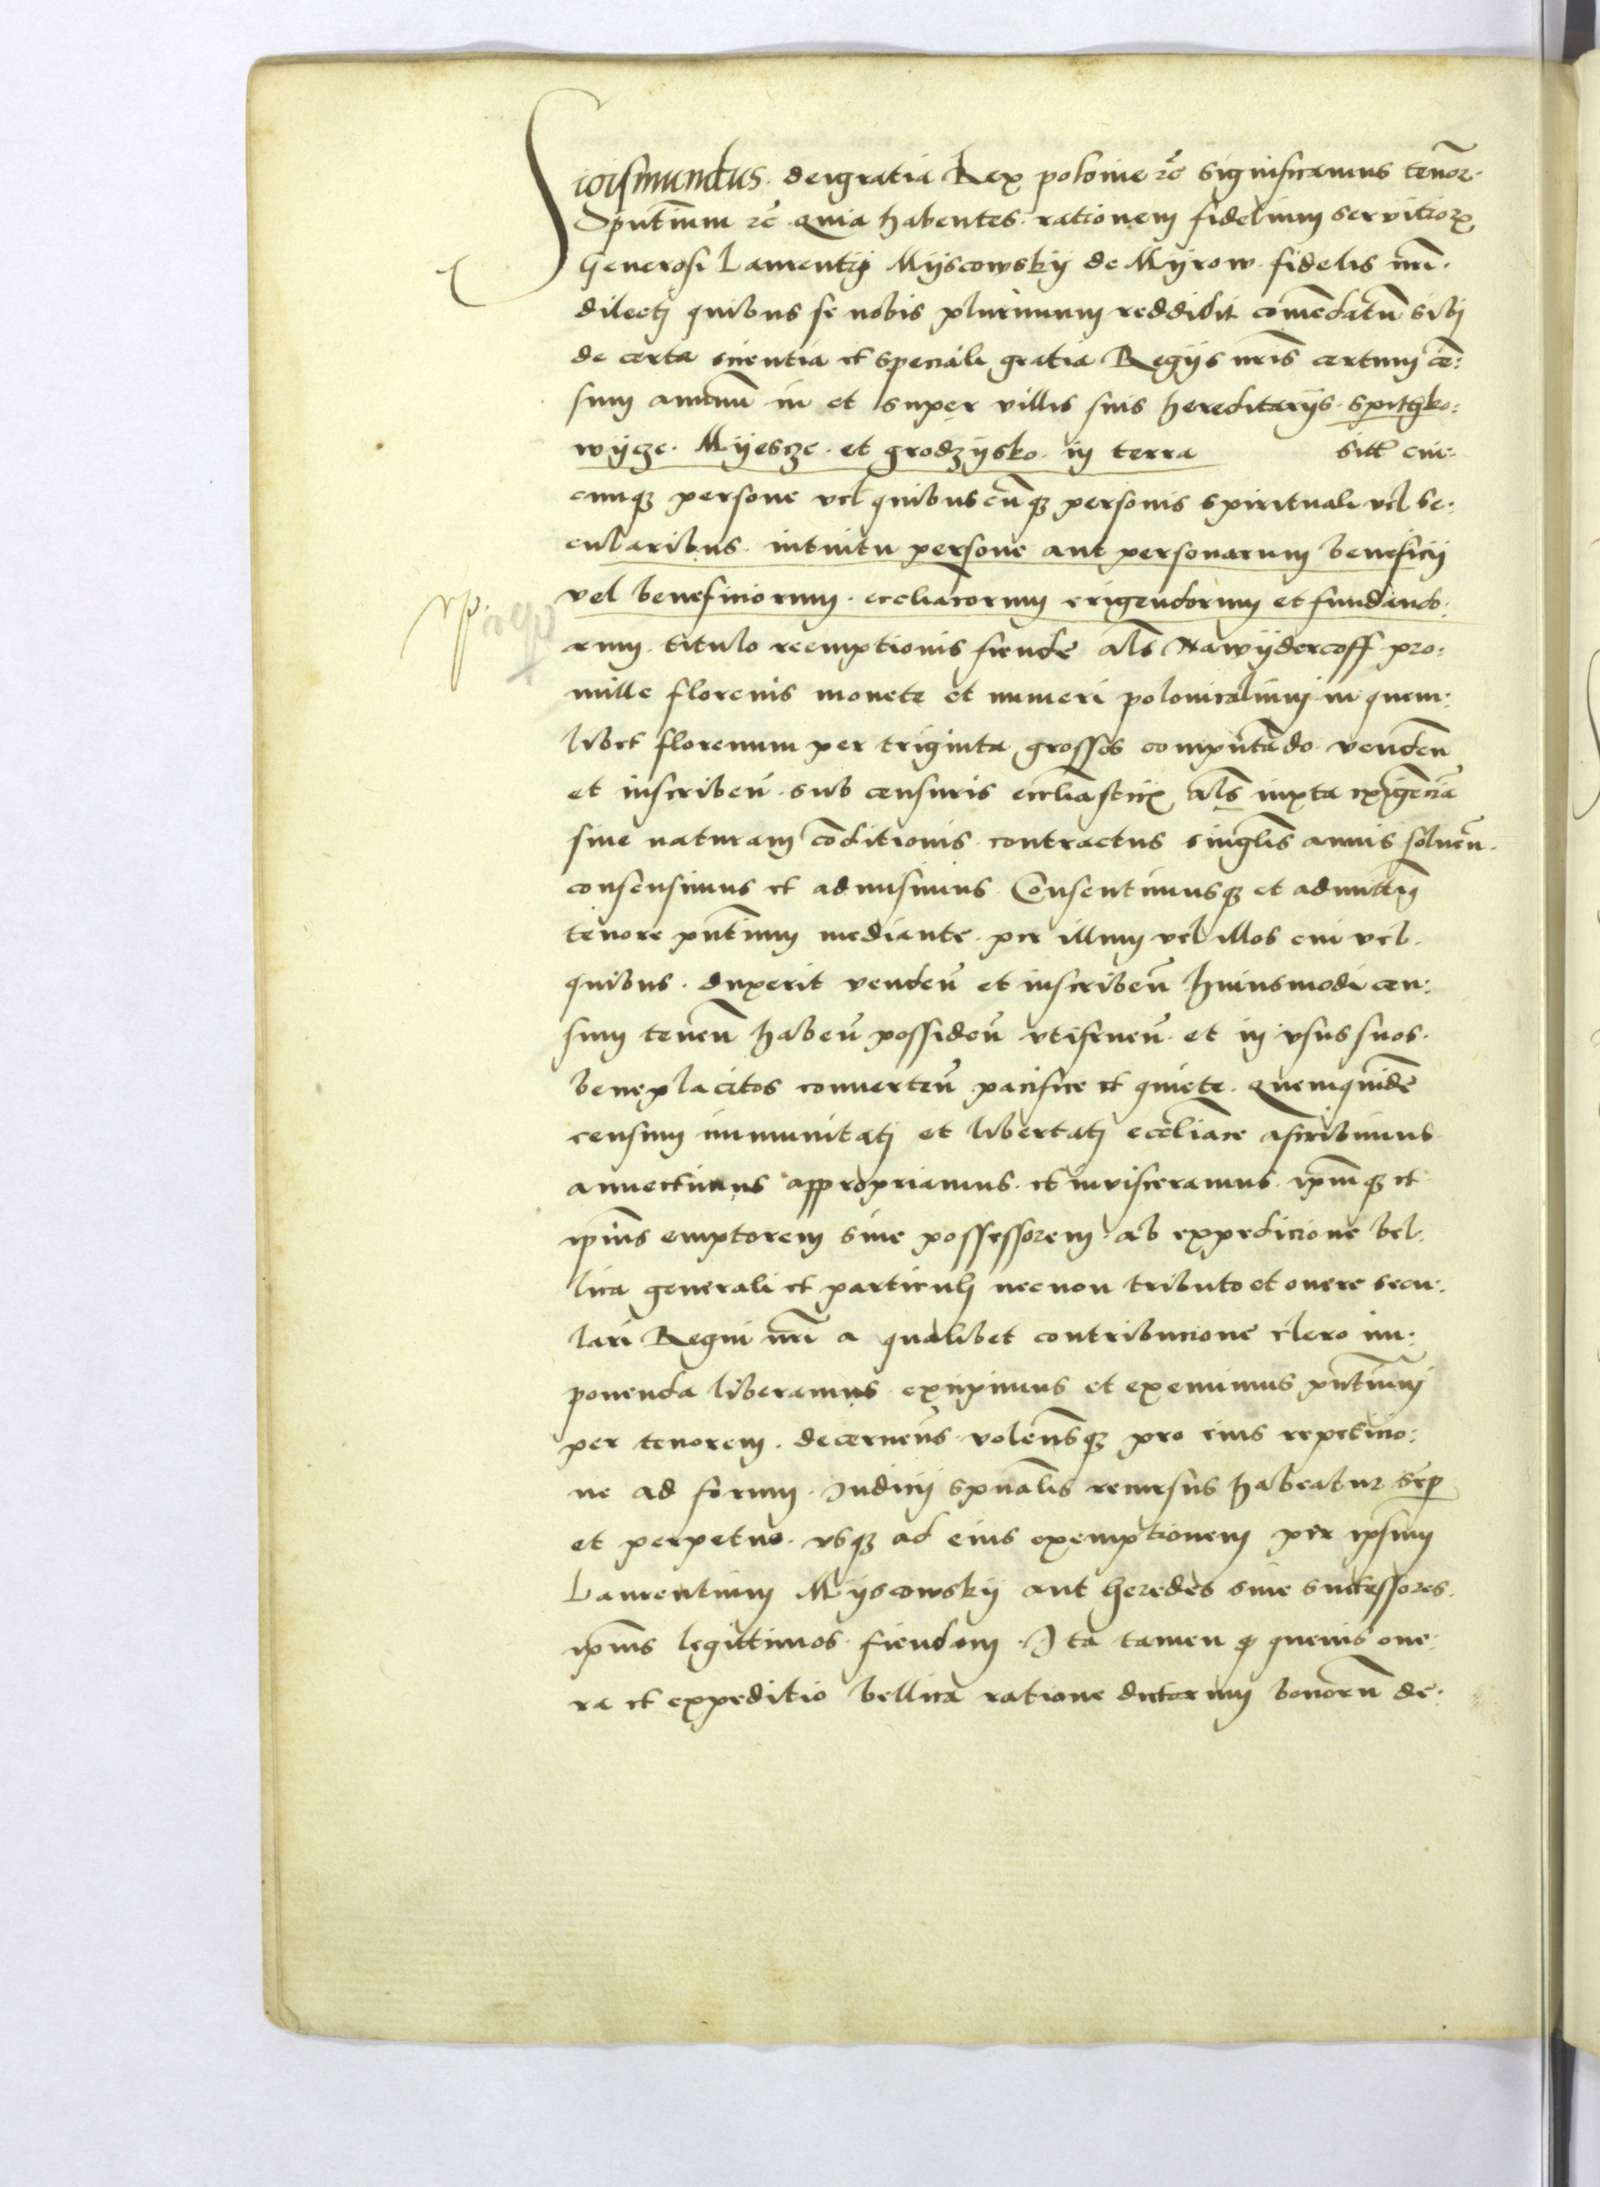 Sigismundus. dei gratia Rex polonie ꝛc̃ significamus tenor̃.
p̃ntium ꝛc̃ Quia habentes. rationem fidelium servitiorꝝ
Generosi Laurentij Mÿscowskÿ de Mÿrow. fidelis nr̃i.
dilectj quibus se nobis plurimum reddidit comẽdatũ sibj
de certa scientia et speciali gratia Regijs nr̃is certum cẽ:
sum annuũ in et super villis suis hereditarijs. Spithko:
wÿcze. Mÿescze. et grodzÿsko. in terra sitt̃ cui:
cunqꝫ persone vel quibuscũqꝫ personis spirituali vel se:
cularibus. intuitu persone aut personarum beneficij
vel beneficiorum. eccliãcorum erigendorum et fundando:
rum. titulo reemptionis fiende al̃s Nawÿdercoff pro:
mille florenis monete et numeri polonicalium in quem:
libet florenum per triginta grossos computãdo. vendeñ
et inscribeñ. sub censuris eccliãsticꝭ al̃s iuxta exigenciã
siue naturam cõditionis. contractus singl̃is annis solueñ.
consensimus et admisimus. Consentimusqꝫ et admittim̃
tenore p̃ntium mediante. per illum vel illos cui vel.
quibus. duxerit vendeñ et inscribeñ huiusmodi cen:
sum teneñ habeñ possideñ vtifrueñ. et in vsus suos.
beneplacitos conuerteñ pacifice et quiete. Quemquidẽ
censum immunitatj et libertatj eccliãce ascribimus.
annectimus appropriamus. et inuisceramus. ip̃mqꝫ et
ip̃ius emptorem siue possessorem ab expedicione bel:
lica generali et particul̃j necnon tributo et onere secu:
lari Regni nr̃i a qualibet contribucione clero im:
ponenda liberamus. excipimus et eximimus p̃ntium
per tenorem. decerneñs volenšqꝫ pro eius repeticio:
ne ad forum. Judicij sp̃ualis recursus habeatur. sẽp
et perpetuo. vsqꝫ ad eius exemptionem per ipsum
Laurentium Mÿscowskÿ aut heredes siue successores.
ip̃ius legittimos. fiendam. Ita tamen ꝙ queuis one:
ra et expeditio bellica ratione dictorum bonorũ de: